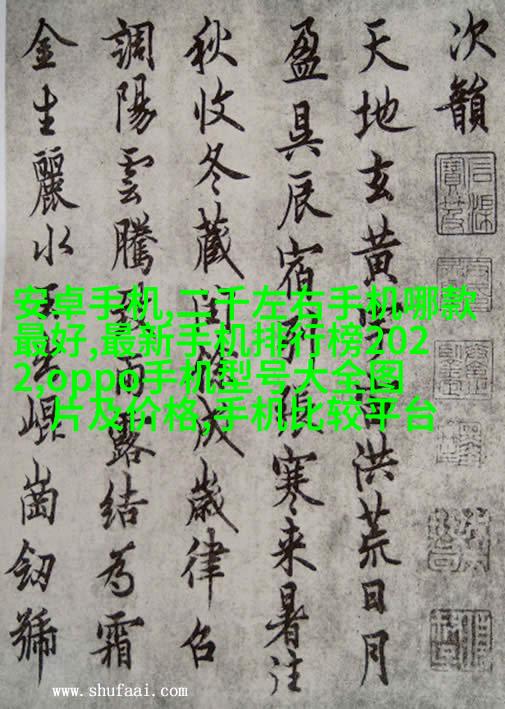 次韻
天地玄黄洪荒日月
盈昃辰宿列張寒来暑往
秋收冬藏閏餘成歲律召
調陽雲騰致雨露結為霜
金生麗水玉出崐崗劒號
安卓手机,二千左右手机哪款
最好,最新手机排行榜202
2,oppo手机型号大全图
片及价格,手机比较平台
www.shufaai.com